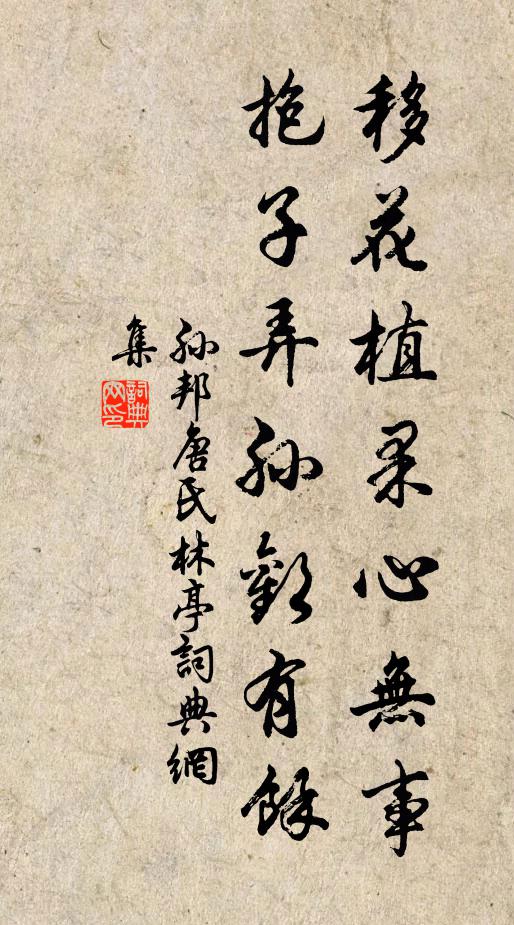 移花植果心無事
抱子弄孫歡有餘
孫邦唐氏林亭詞典網
集
詞典網印